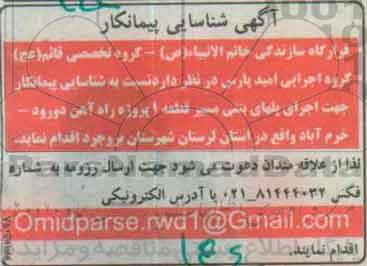 آگهی شناسایی پیمانکار
قرارگاه سازندگی خاتم الانبیاء(ص) – گروه تخصصی قائم(عج)
گروه اجرایی امید پارس در نظر دارد نسبت به شناسایی پیمانکار
جهت اجرای پلهای بتنی مسیر قطعه ۱ پروژه راه آهن دورود –
خرم آباد واقع در استان لرستان شهرستان بروجرد اقدام نماید.
لذا از علاقه مندان دعوت می شود جهت ارسال رزومه به شماره
فکس ۸۱۴۴۴۰۳۲–۰۲۱ یا آدرس الکترونیکی
Omidparse.rwd1@Gmail.com
اقدام نمایند.